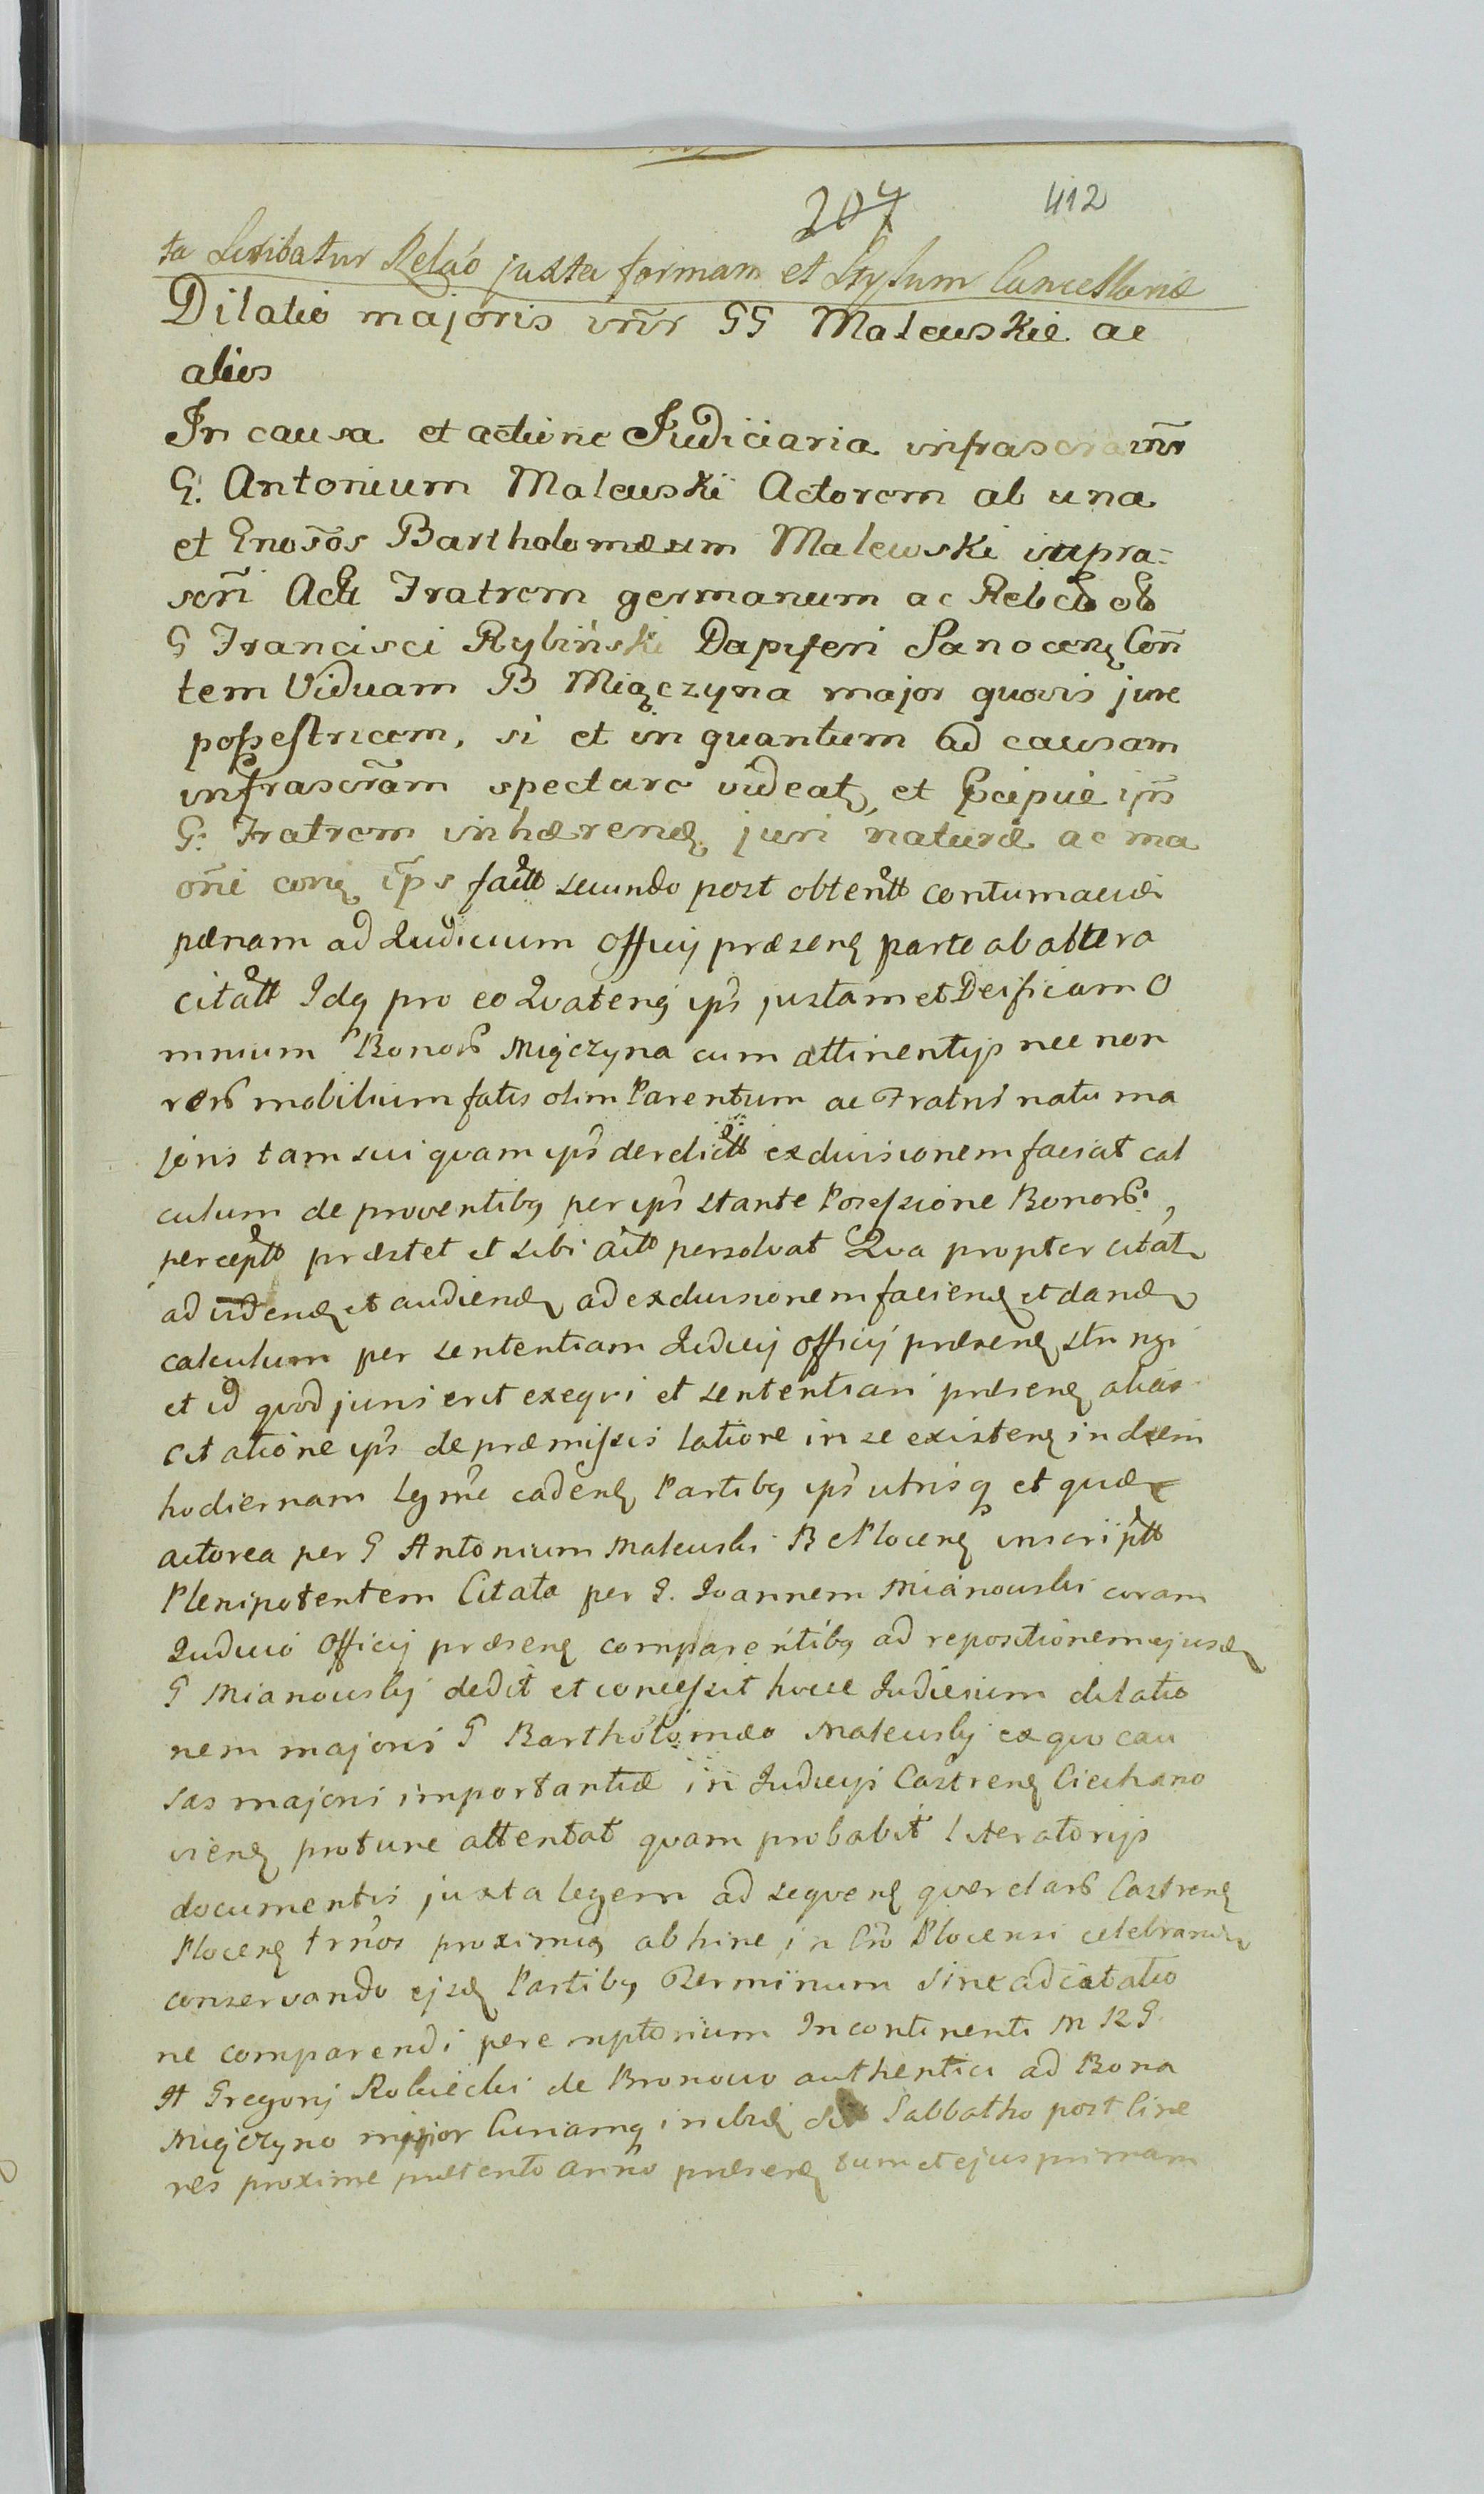 207 412
ta Scribatur Relaõ juxta formam et Stylum Cancellariæ
Dilatio majoris inr̃ GG Malewskie ac
alios
In causa et actione Judiciaria infrascr inr̃
G. Antonium Malewski Actorem ab una
et Gnosõs Bartholomæum Malewski supra=
scri Fratrem germanum ac
G Francisci Rybiński Dapiferi Sanocen Con
tem Viduam B Miączyna major quovis jure
possestricem, si et in quantum ad causam
infrascrãm spectare videat, et Præcipue ips
G: Fratrem inhærend juri naturæ ac ma
oñi cong ips secundo post contumaciæ
pænam ad Judicium Officij præsen parte ab altera
Idq pro eo Quateng ips justam et Deificam O
mnium Bonor Miączyna cum attinentijs nec non
rer mobilium fatis olim Parentum ac Fratris natu ma
joris tam sui quam ips exdivisionem faciat cal
culum de proventibq per ips stante Possessione Bonor,
præstet et sibi persolvat Qua propter citat
ad videnđ et audiend ad exdivisionem faciend et dand
calculum per sententiam Judicij Officij præsen stringi
et id quod juris erit exeqvi et sententiari præsen alias
citatione ips de præmissis latiore in se existen in diem
hodiernam lgm̃e caden Partibq ips utrisq et quidem
actorea per G Antonium Malewski B Plocen
Plenipotentem Citata per G. Joannem Mianowski coram
Judicio Officij præsen comparentibq ad repositionem ejusd
G Mianowskj dedit et concessit hocce Judicium dilatio
nem majoris G Bartholomæo Malewskj ex quo cau
sas majoris importantiæ in Judicijs Castren Ciechano
vien protunc attentat quam probabit literatorijs
documentis juxta legem ad seqven querelar Castren
Plocen trños proximiq abhinc in Cro Plocensi celebrand
conservando ejsd Partibq Terminum sine adcitatio
ne comparendi peremptorium Incontinenti M R G
H Gregorj Robiecki de Bronowo authentici ad Bona
Miączyno major Curiamq inibid Sabbatho post Cine
res proxime præterito anno præsen tum et ejus primam